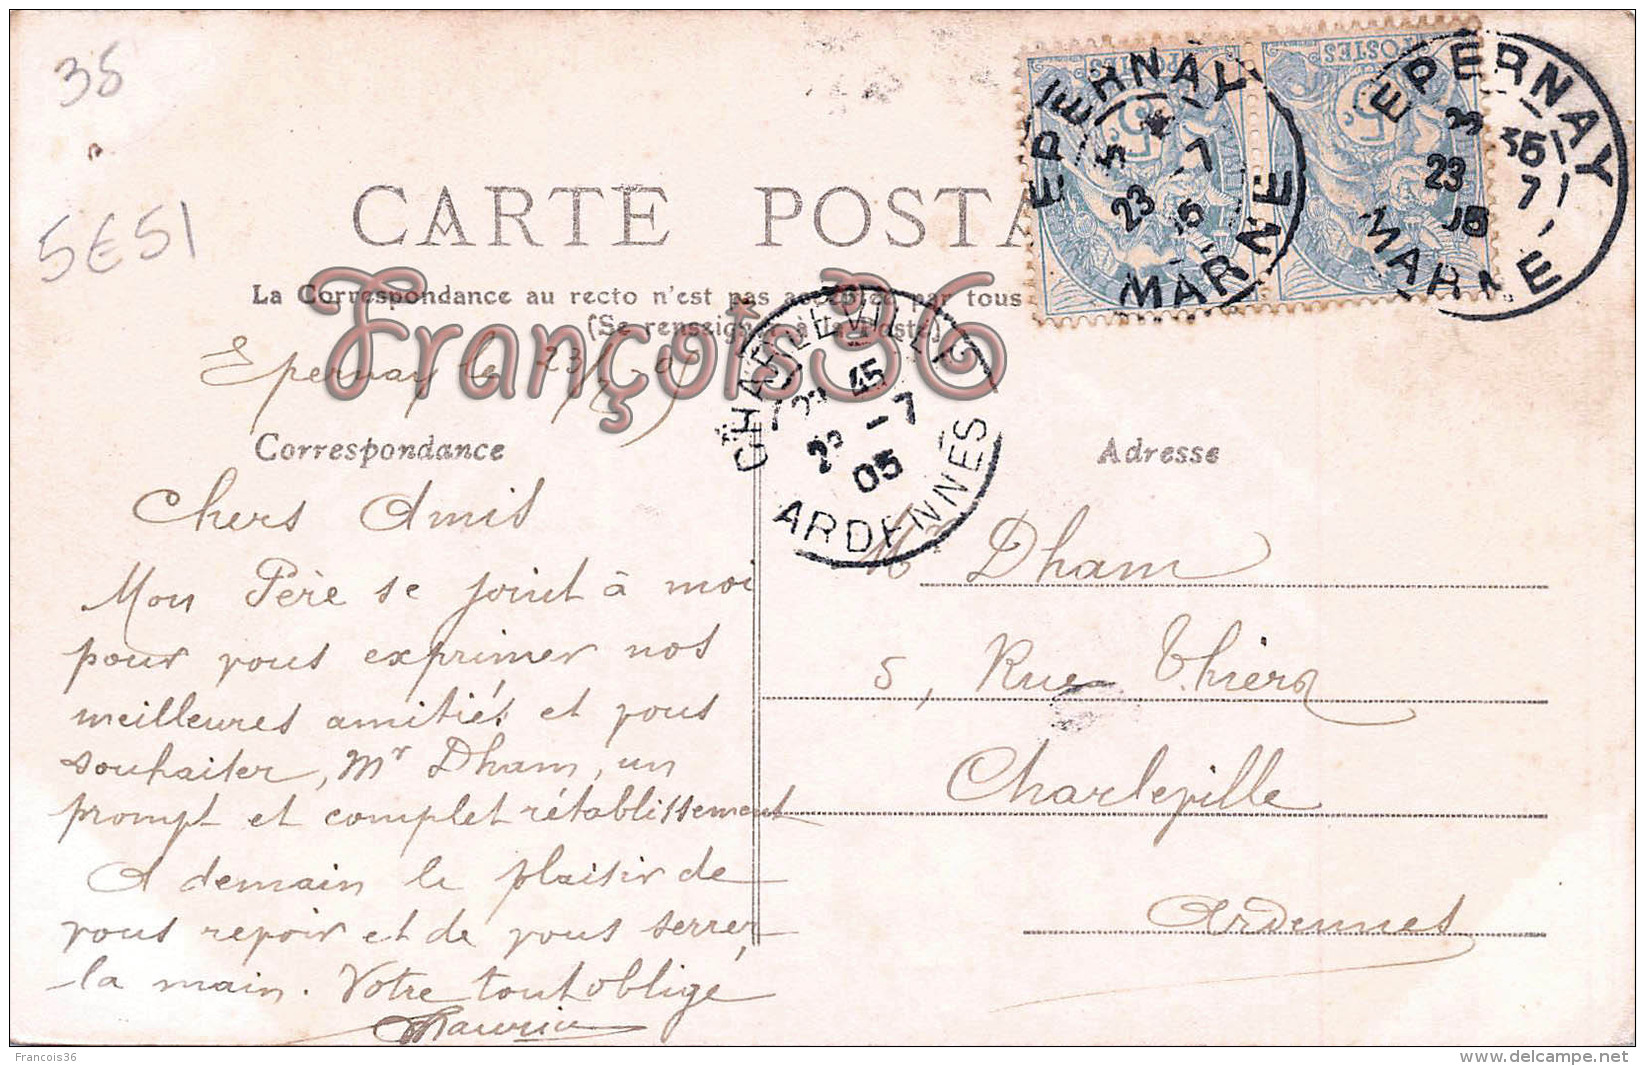 38
5E51
CARTE POSTA
La Correspondance au recto n'est pas acceptée par tous
(Se renseigner à la Poste)
François36
POSTES
POSTES
EPERNAY
23 -7 05
MARNE
EPERNAY
23 7 05
MARNE
CHARLEVILLE
23 -7
05
ARDENNES
Epernay le 23/7-05
Correspondance
Chers Amis
Mon Père se joint à moi
pour vous exprimer nos
meilleures amitiés et vous
souhaiter, Mr Dham, un
prompt et complet rétablissement
A demain le plaisir de
vous revoir et de vous serrer
la main. Votre tout obligé
Maurice
Adresse
Mr Dham
5, Rue Thiers
Charleville
Ardennes
Francois36
www.delcampe.net